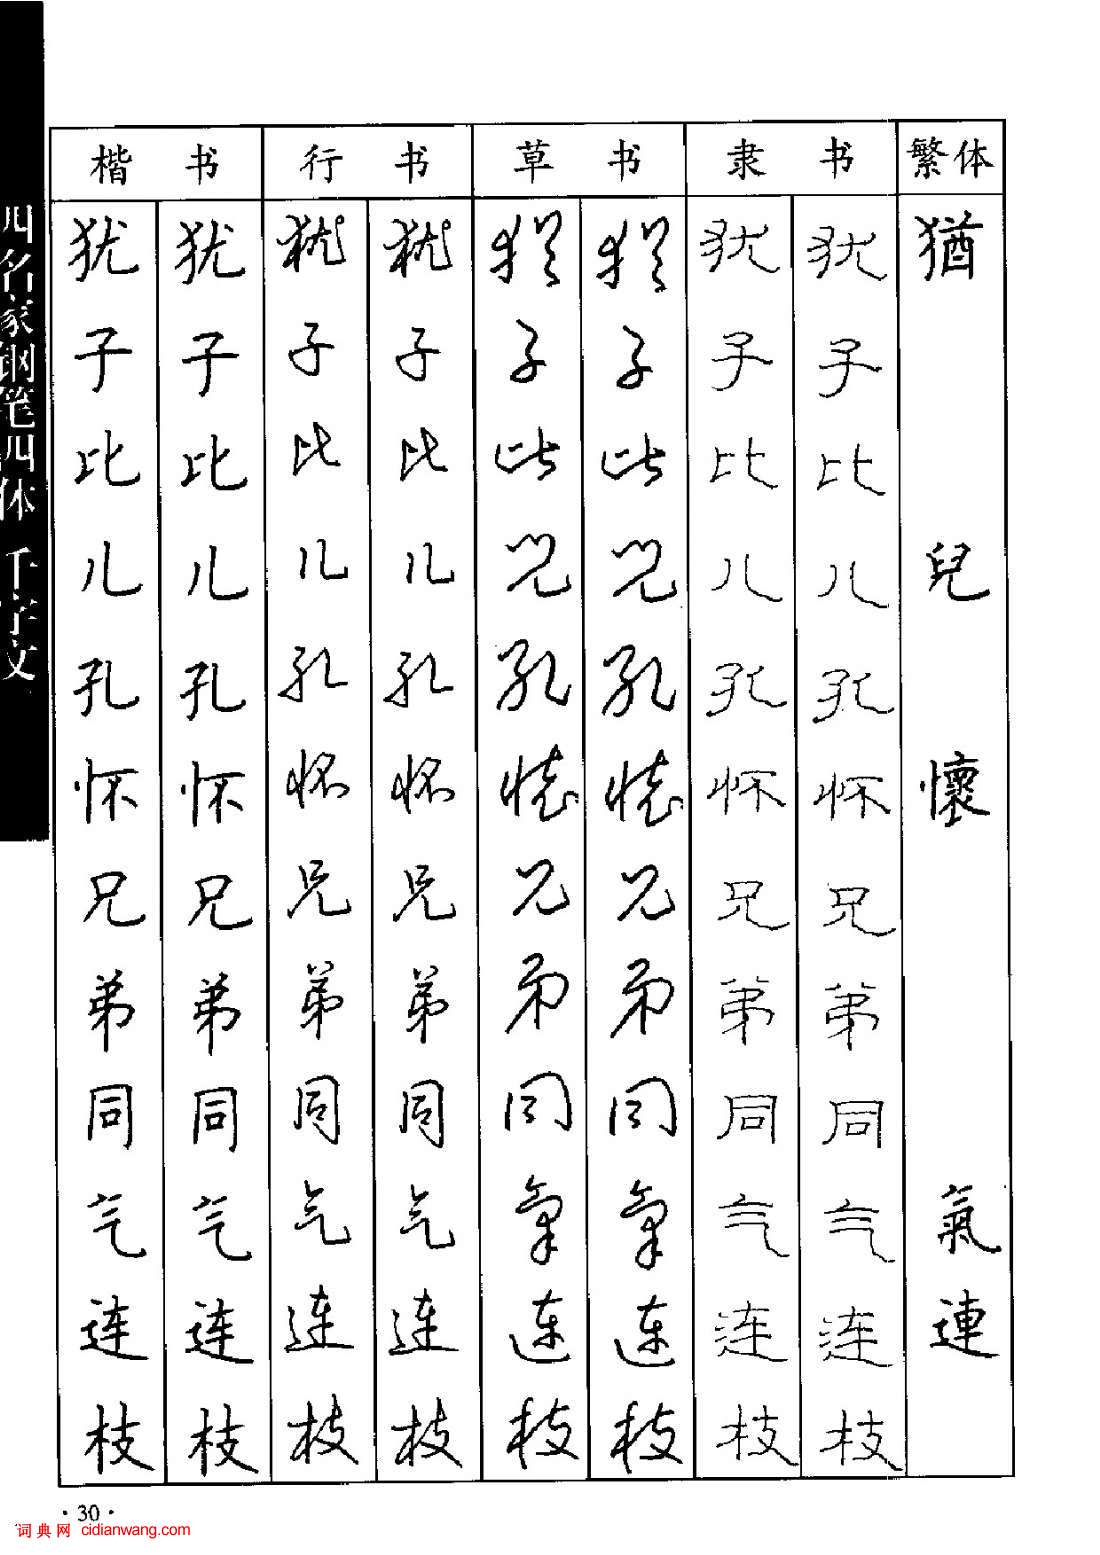 四名家钢笔四体 千字文
楷书 行书 草书 隶书 繁体
犹 犹 犹 犹 犹 犹 犹 犹 猶
子 子 子 子 子 子 子 子
比 比 比 比 比 比 比 比
儿 儿 儿 儿 兒 兒 儿 儿 兒
孔 孔 孔 孔 孔 孔 孔 孔
怀 怀 怀 怀 懷 懷 怀 怀 懷
兄 兄 兄 兄 兄 兄 兄 兄
弟 弟 弟 弟 弟 弟 弟 弟
同 同 同 同 同 同 同 同
气 气 气 气 氣 氣 气 气 氣
连 连 连 连 连 连 连 连 連
枝 枝 枝 枝 枝 枝 枝 枝
·30·
词典网 cidianwang.com